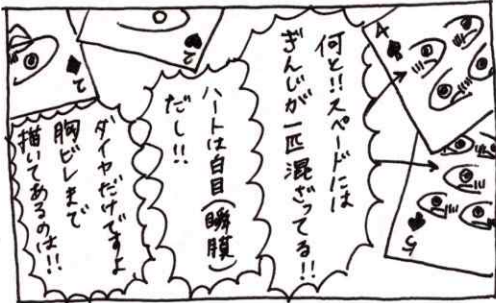 何と!!スペードには
ぎんじが一匹混ざってる!!
ハートは白目(瞬膜)
だし!!
ダイヤだけですよ
胸ビレまで
描いてあるのは!!
A
5
2
2